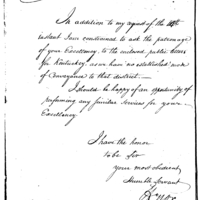 In addition to my agued of the 4th
instant I am emotioned to ask the patronage
of your Excellency to the
for Kentuckey as we have no established mode
of Conveyance to that district—
I should be happy of an opportunity of
performing any familiar services for your
Excellency
I have the honor
to be Sir
your most obedient
Humble Servant